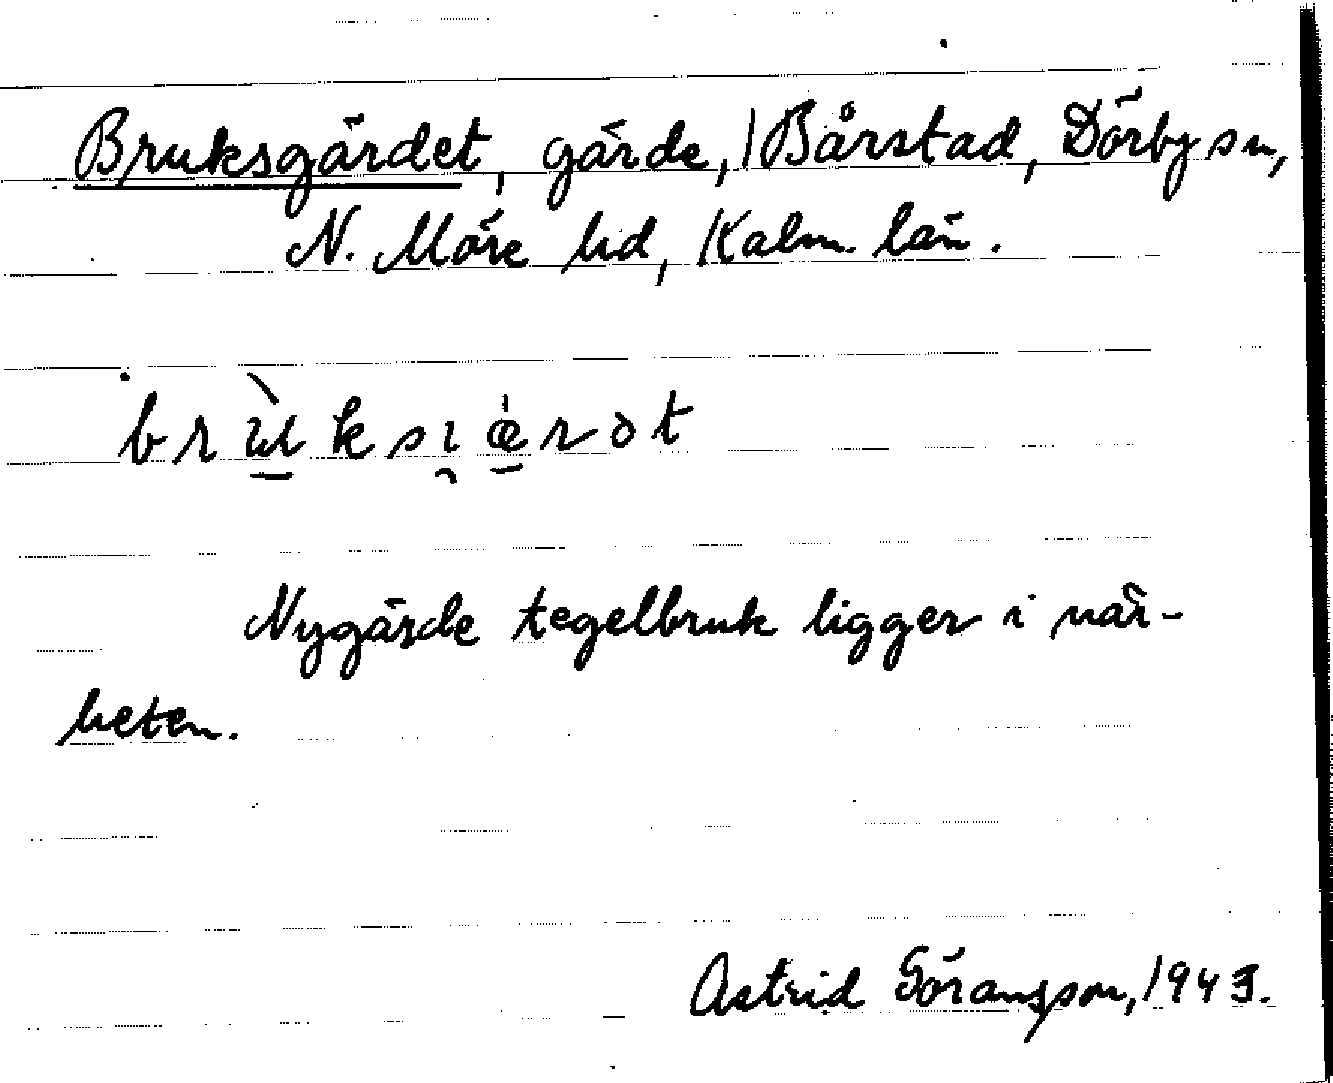 Bruksgärdet, gärde, Bårstad, Dörby sn,
N. Möre hd, Kalm. län.
brùksi̯æ̍rət
Nygärde tegelbruk ligger i när-
heten.
Astrid Göransson, 1943.